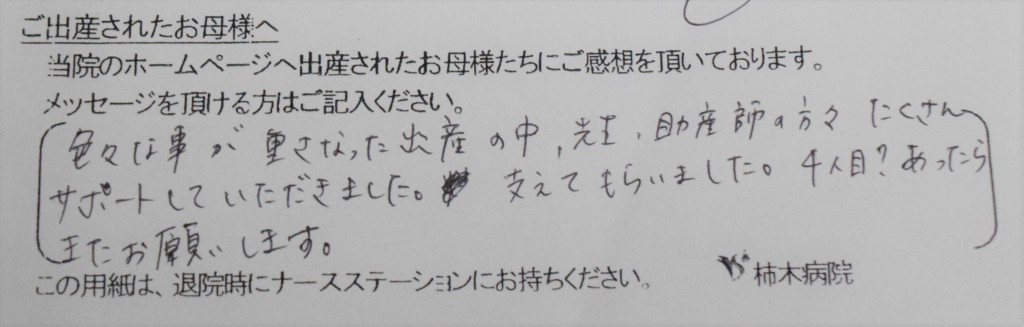 ご出産されたお母様へ
当院のホームページへ出産されたお母様たちにご感想を頂いております。
メッセージを頂ける方はご記入ください。
色々な事が重さなった出産の中,先生、助産師の方々たくさん
サポートしていただきました。支えてもらいました。4人目?あったら
またお願いします。
この用紙は、退院時にナースステーションにお持ちください。
柿木病院